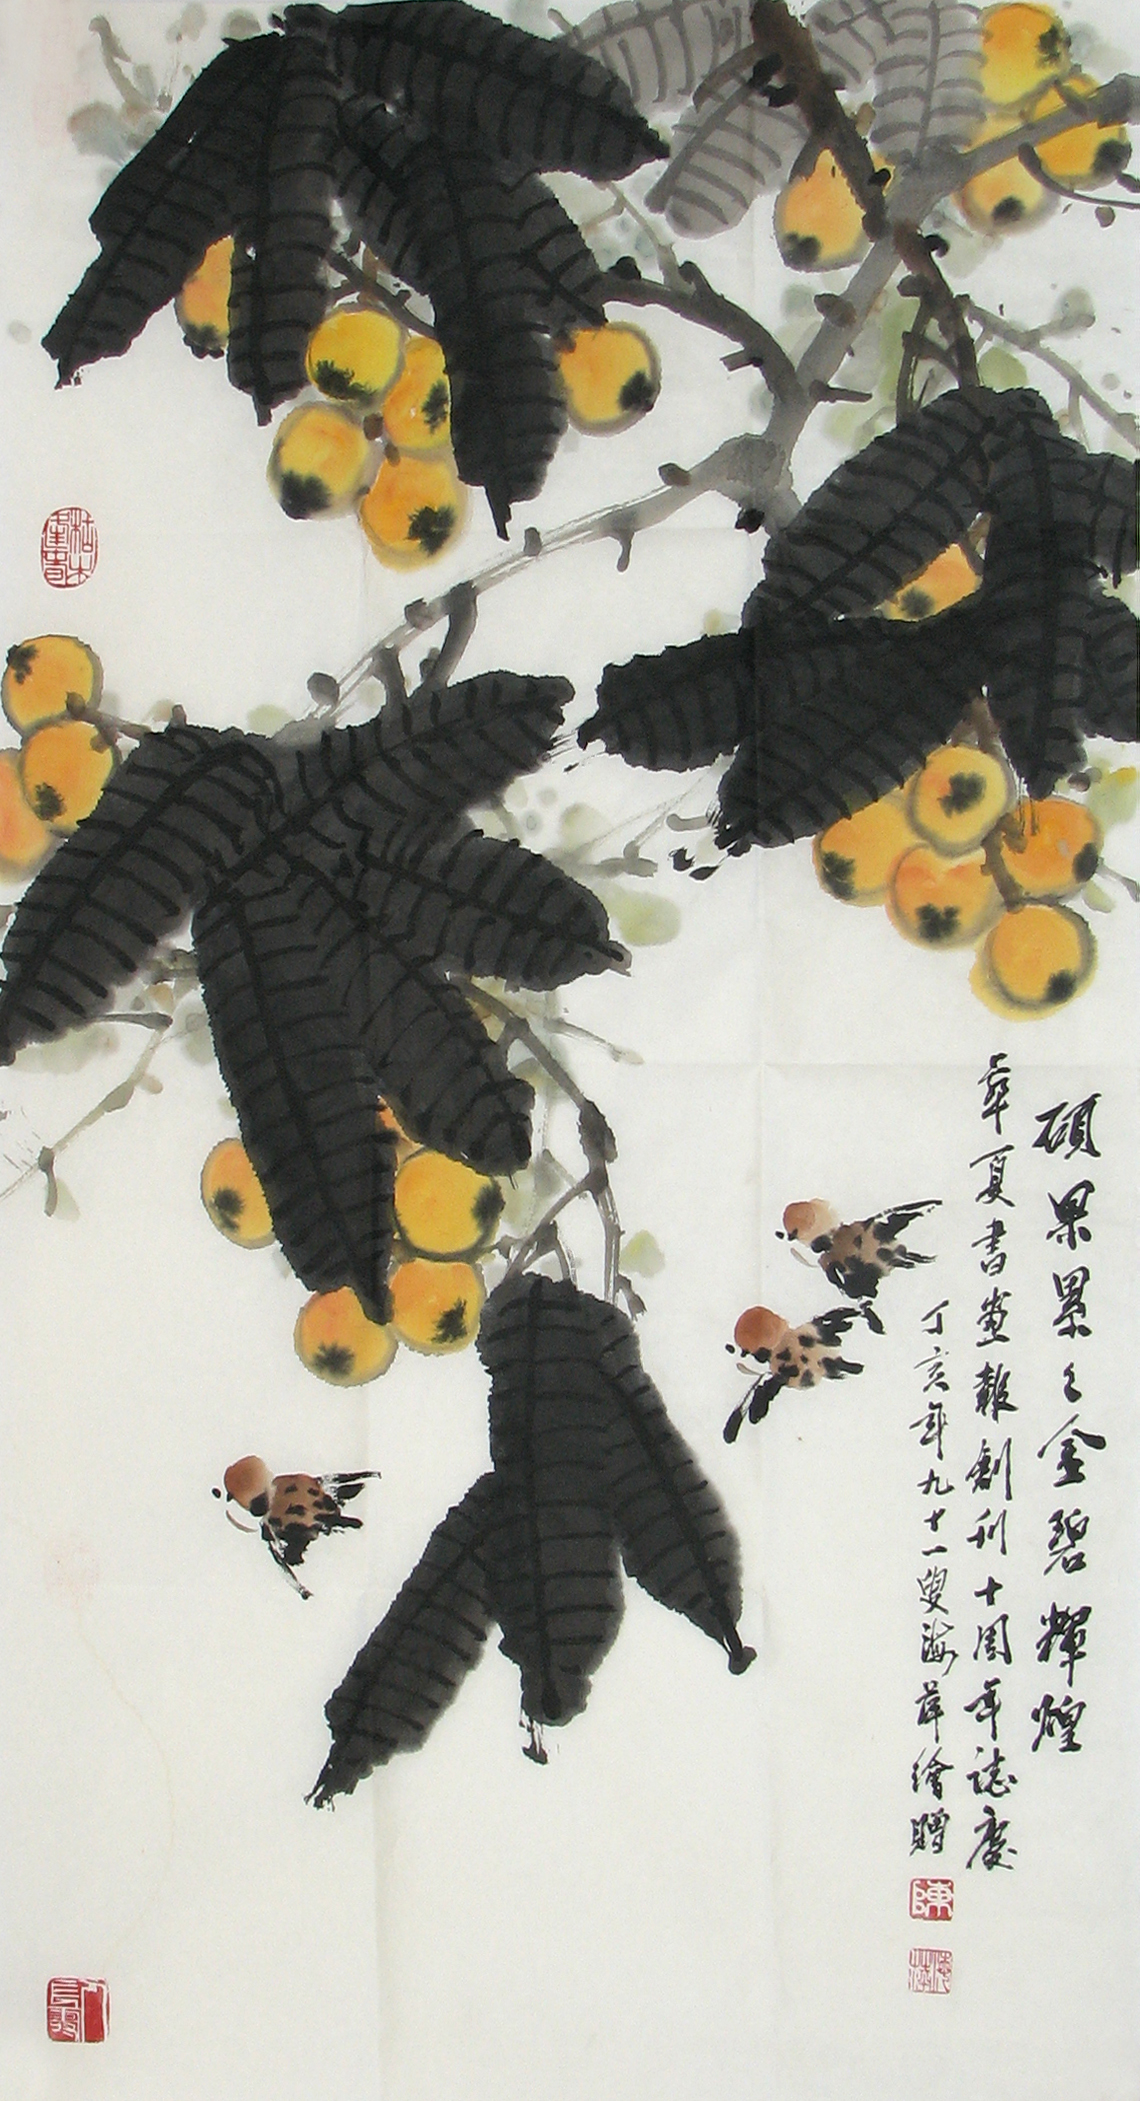 碩果累々金碧輝煌
華夏書畫報創刊十周年誌慶
丁亥年九十一叟海萍繪贈
陳
枯木逢春